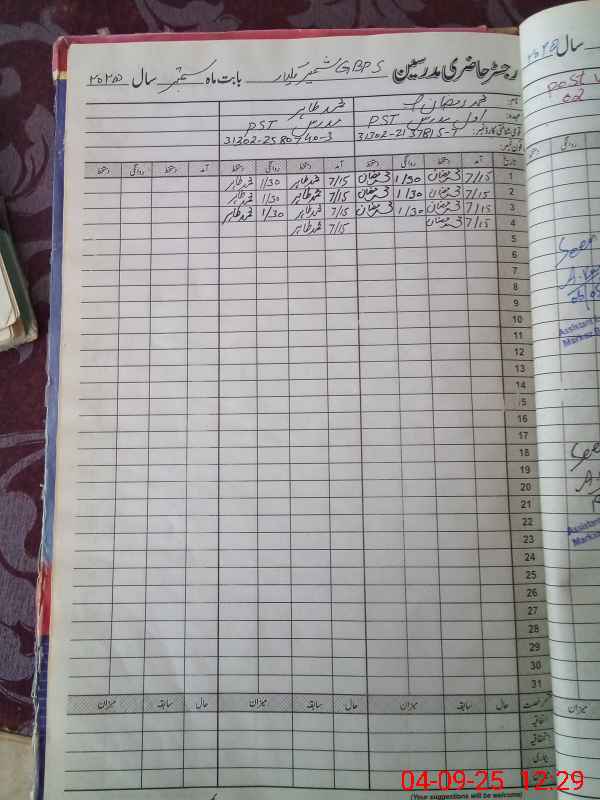 رجسٹر حاضری مدرسین GBPS بابت ماہ ستمبر سال ۲۰۲۵
نام: محمد رمضان محمد طاہر
عہدہ: اول مدرس PST مدرس PST
31302-2137815-7 31302-2580740-3
فون نمبر:
تاریخ آمد دستخط روانگی دستخط آمد دستخط روانگی دستخط آمد دستخط روانگی دستخط
1 7/15 محمد رمضان 1/30 محمد رمضان 7/15 محمد طاہر 1/30 محمد طاہر
2 7/15 محمد رمضان 1/30 محمد رمضان 7/15 محمد طاہر 1/30 محمد طاہر
3 7/15 محمد رمضان 1/30 محمد رمضان 7/15 محمد طاہر 1/30 محمد طاہر
4 7/15 محمد رمضان 7/15 محمد طاہر
5
6
7
8
9
10
11
12
13
14
15
16
17
18
19
20
21
22
23
24
25
26
27
28
29
30
31
رخصت حال سابقہ میزان حال سابقہ میزان حال سابقہ میزان
اتفاقیہ
بیماری
(Your suggestions will be welcome)
سال
post
02
روانگی دستخط
Seen
Assistant
Seen
Assistant
میزان
04-09-25 12:29